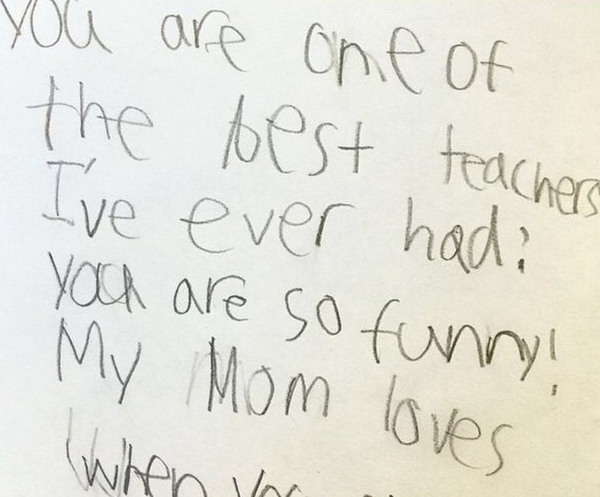 you are one of
the best teachers
I've ever had!
you are so funny!
My Mom loves
when